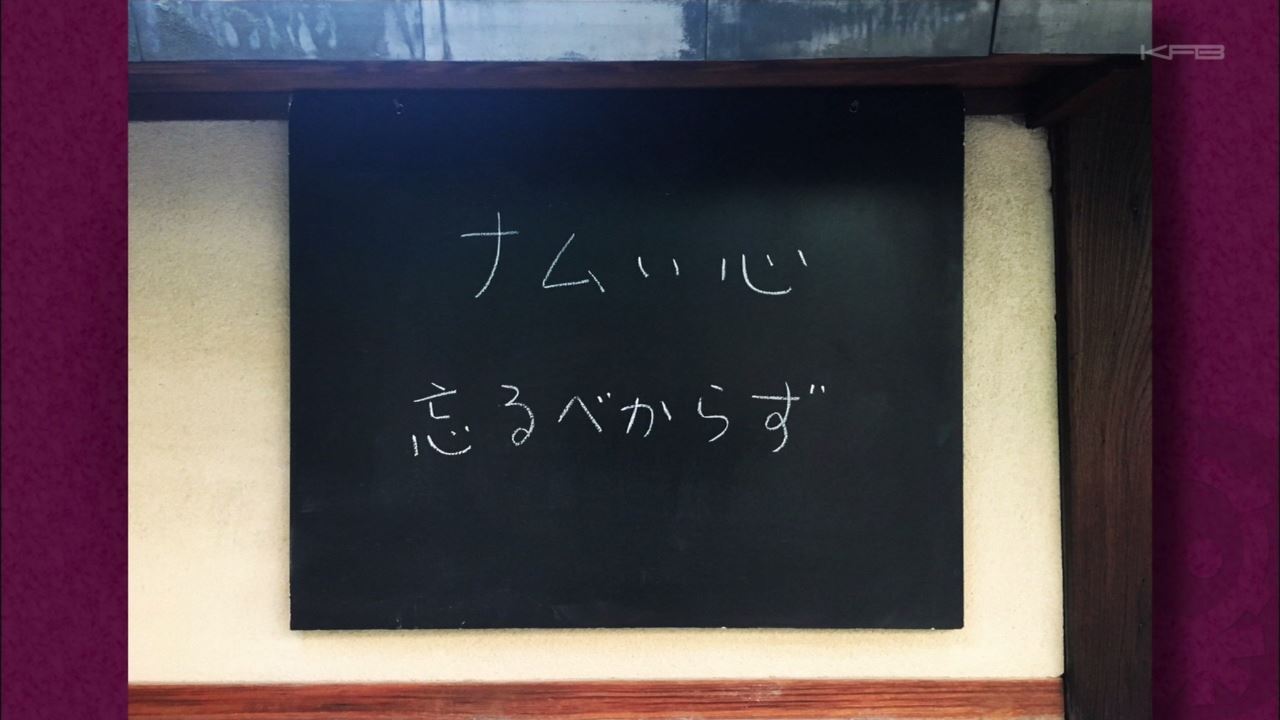 ナムい心
忘るべからず
KFB